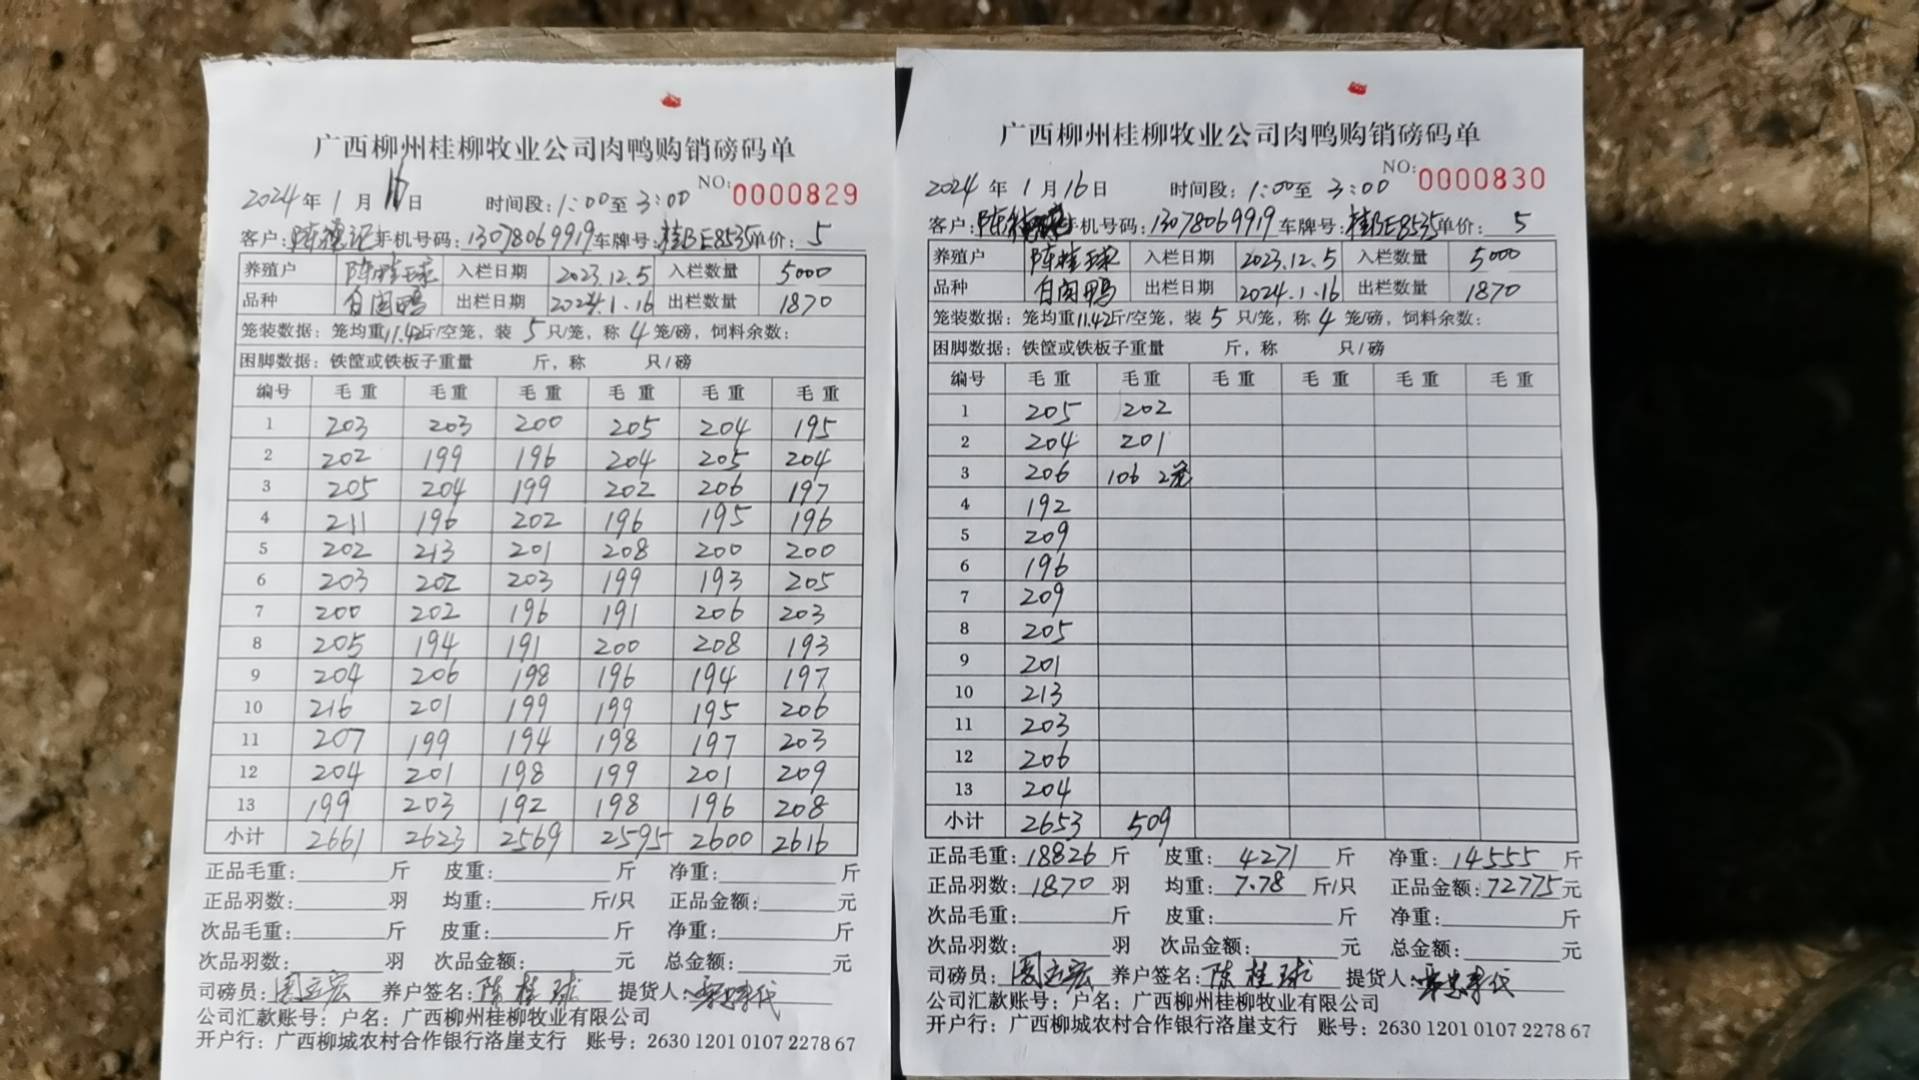 广西柳州桂柳牧业公司肉鸭购销磅码单
NO: 0000829
2024年 1 月 16 日 时间段: 1:00至 3:00
客户: 陈德记 手机号码: 13078069919 车牌号: 桂BE8535 单价: 5
养殖户 陈桂球 入栏日期 2023.12.5 入栏数量 5000
品种 白肉鸭 出栏日期 2024.1.16 出栏数量 1870
笼装数据: 笼均重11.42斤/空笼, 装 5 只/笼, 称 4 笼/磅, 饲料余数:
困脚数据: 铁筐或铁板子重量 斤, 称 只/磅
编号 毛重 毛重 毛重 毛重 毛重 毛重
1 203 203 200 205 204 195
2 202 199 196 204 205 204
3 205 204 199 202 206 197
4 211 196 202 196 195 196
5 202 213 201 208 200 200
6 203 202 203 199 193 205
7 200 202 196 191 206 203
8 205 194 191 200 208 193
9 204 206 198 196 194 197
10 216 201 199 199 195 206
11 207 199 194 198 197 203
12 204 201 198 199 201 209
13 199 203 192 198 196 208
小计 2661 2623 2569 2595 2600 2616
正品毛重: 斤 皮重: 斤 净重: 斤
正品羽数: 羽 均重: 斤/只 正品金额: 元
次品毛重: 斤 皮重: 斤 净重: 斤
次品羽数: 羽 次品金额: 元 总金额: 元
司磅员: 周立宏 养户签名: 陈桂球 提货人: 代
公司汇款账号: 户名: 广西柳州桂柳牧业有限公司
开户行: 广西柳城农村合作银行洛崖支行 账号: 2630 1201 0107 2278 67
广西柳州桂柳牧业公司肉鸭购销磅码单
NO: 0000830
2024 年 1 月 16 日 时间段: 1:00至 3:00
客户: 陈 手机号码: 13078069919 车牌号: 桂BE8535 单价: 5
养殖户 陈桂球 入栏日期 2023.12.5 入栏数量 5000
品种 白肉鸭 出栏日期 2024.1.16 出栏数量 1870
笼装数据: 笼均重11.42斤/空笼, 装 5 只/笼, 称 4 笼/磅, 饲料余数:
困脚数据: 铁筐或铁板子重量 斤, 称 只/磅
编号 毛重 毛重 毛重 毛重 毛重 毛重
1 205 202
2 204 201
3 206 106 2笼
4 192
5 209
6 196
7 209
8 205
9 201
10 213
11 203
12 206
13 204
小计 2653 509
正品毛重: 18826 斤 皮重: 4271 斤 净重: 14555 斤
正品羽数: 1870 羽 均重: 7.78 斤/只 正品金额: 72775元
次品毛重: 斤 皮重: 斤 净重: 斤
次品羽数: 羽 次品金额: 元 总金额: 元
司磅员: 周立宏 养户签名: 陈桂球 提货人: 代
公司汇款账号: 户名: 广西柳州桂柳牧业有限公司
开户行: 广西柳城农村合作银行洛崖支行 账号: 2630 1201 0107 2278 67